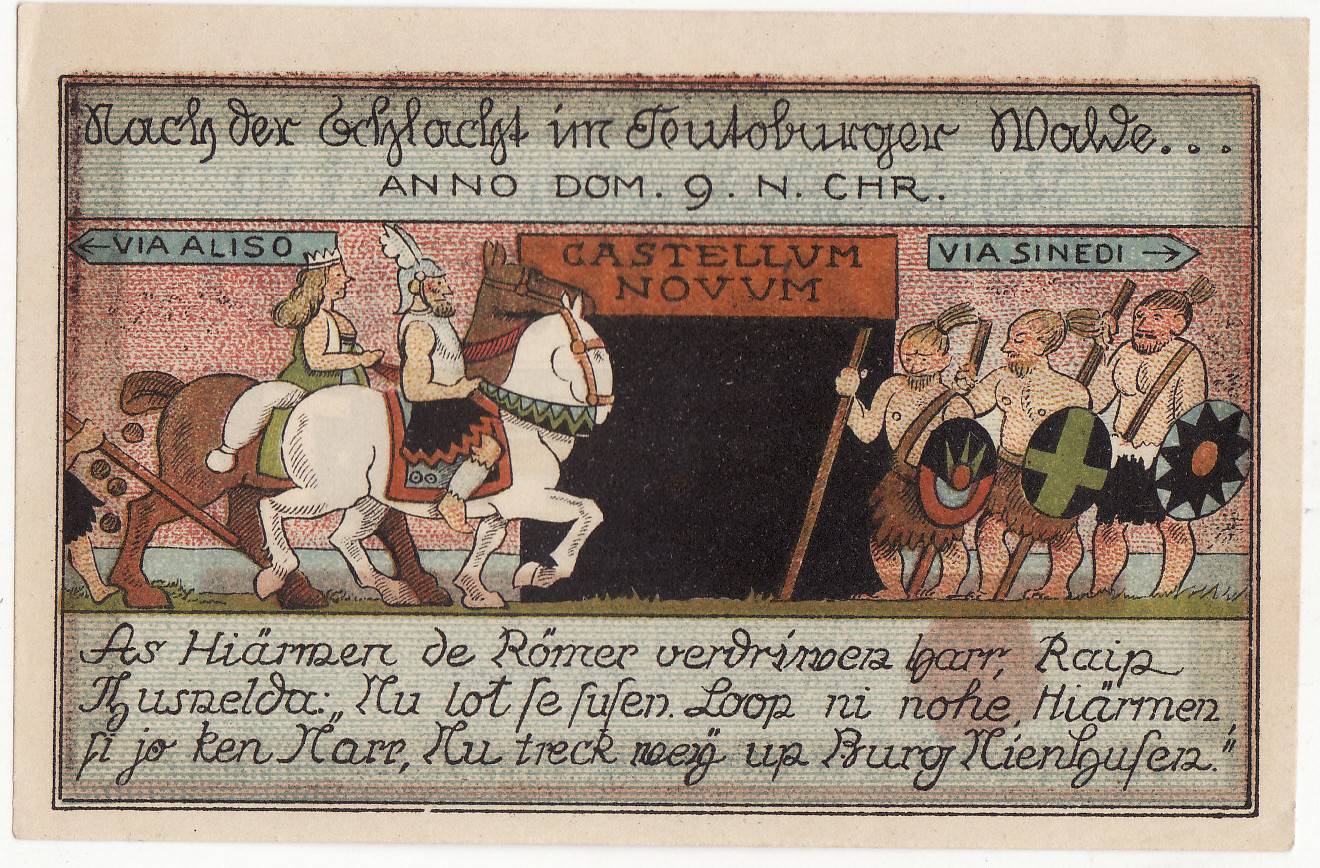 Nach der Schlacht im Teutoburger Walde...
ANNO DOM. 9. N. CHR.
←VIA ALISO
CASTELLUM
NOVUM
VIA SINEDI →
As Hiärmen de Römer verdriwen harr, Raip
Thusnelda: „Nu lot se susen. Loop ni nohe, Hiärmen,
si jo ken Narr, Nu treck weÿ up Burg Nienhusen."